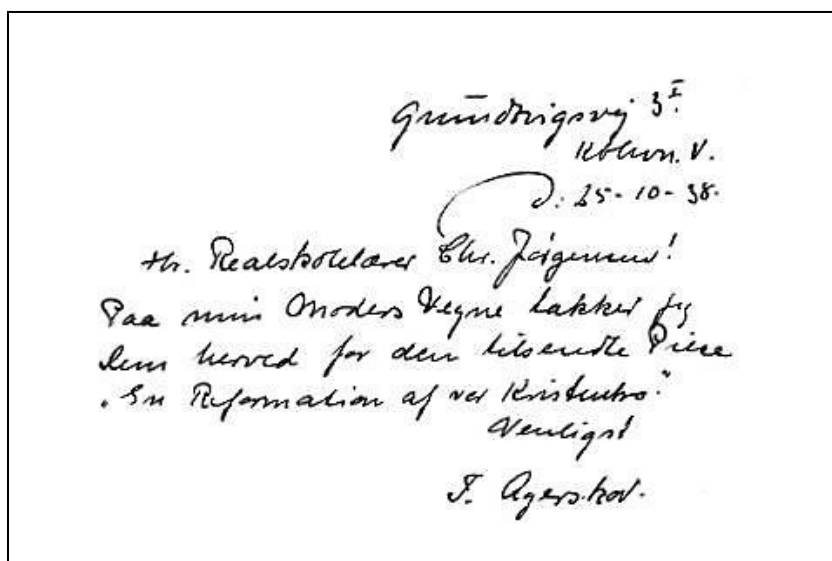 Grundtvigsvej 3 I.
Kbhvn. V.
d: 25-10-38.
Hr. Realskolelærer Chr. Jörgensen!
Paa min Moders Vegne takker jeg
Dem herved for den tilsendte Piece
"En Reformation af vor Kristentro."
Venligst
F. Agerskov.